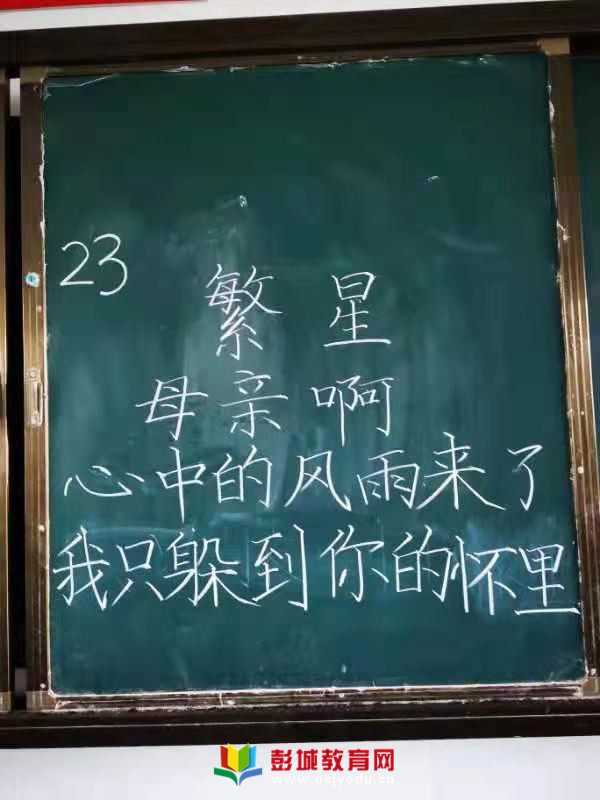 23
繁星
母亲啊
心中的风雨来了
我只躲到你的怀里
彭城教育网
www.pcjyedu.cn